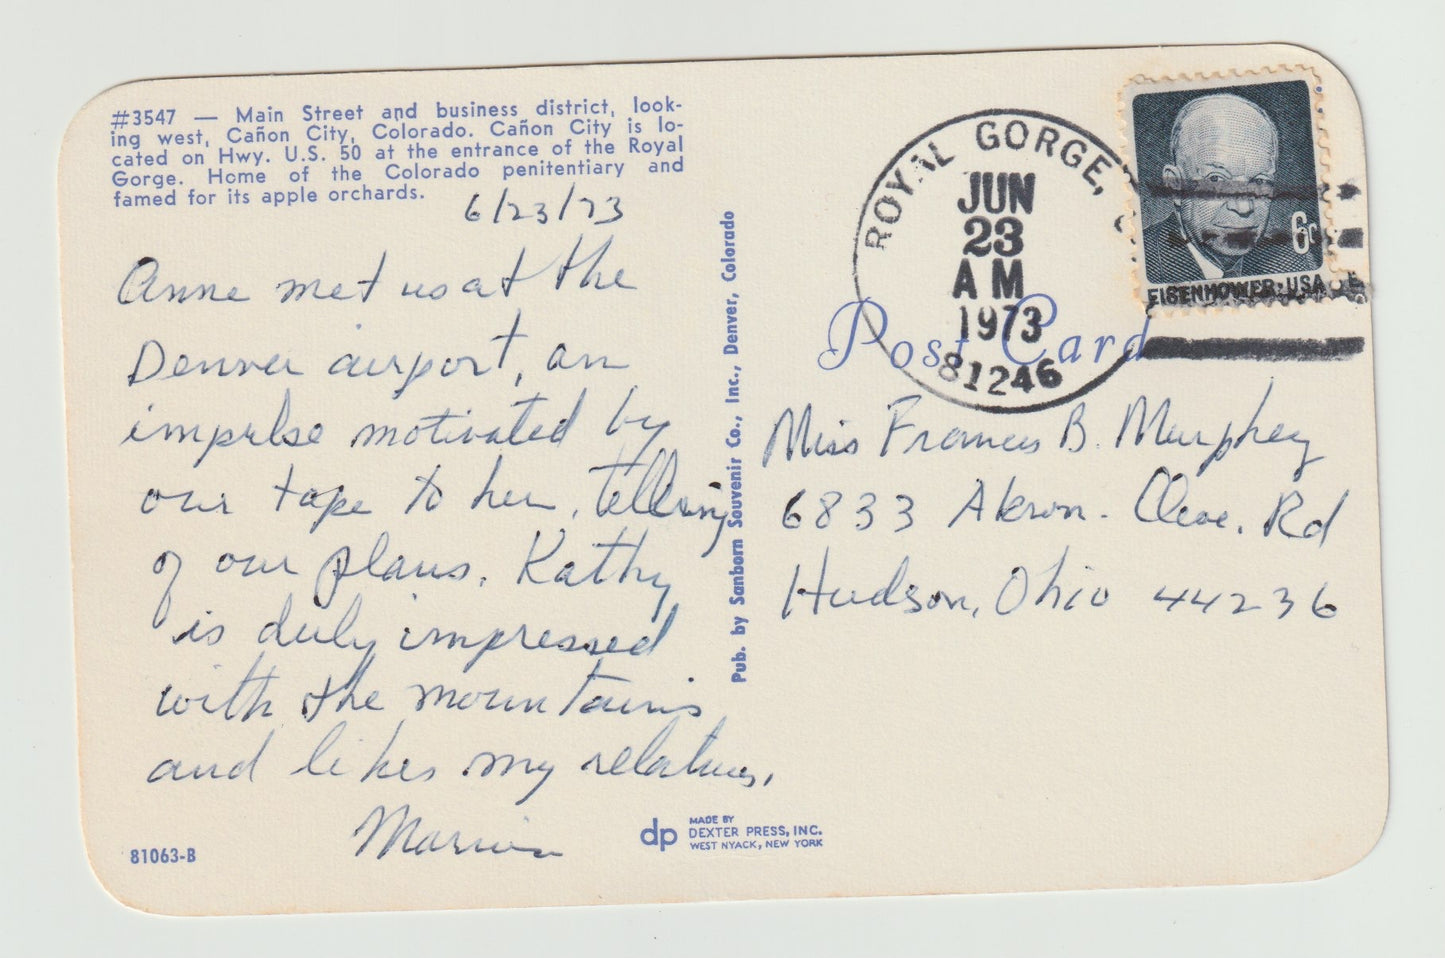 #3547 — Main Street and business district, look-
ing west, Cañon City, Colorado. Cañon City is lo-
cated on Hwy. U.S. 50 at the entrance of the Royal
Gorge. Home of the Colorado penitentiary and
famed for its apple orchards.
6/23/73
Anne met us at the
Denver airport, an
impulse motivated by
our tape to her, telling
of our plans. Kathy
is duly impressed
with the mountains
and likes my relatives.
Marion
81063-B
dp
MADE BY
DEXTER PRESS, INC.
WEST NYACK, NEW YORK
Pub. by Sanborn Souvenir Co., Inc., Denver, Colorado
ROYAL GORGE,
JUN
23
AM
1973
81246
6c
EISENHOWER·USA
Post Card
Miss Frances B. Murphey
6833 Akron-Cleve. Rd
Hudson, Ohio 44236